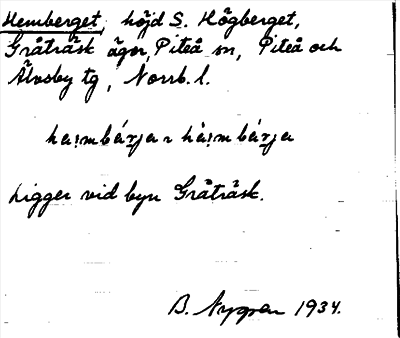 Hemberget, höjd S. Högberget,
Gråträsk ägor, Piteå sn, Piteå och
Älvsby tg, Norrb. l.
ha!mbárja ~ hà!mbárja
Ligger vid byn Gråträsk.
B. Nygren 1934.